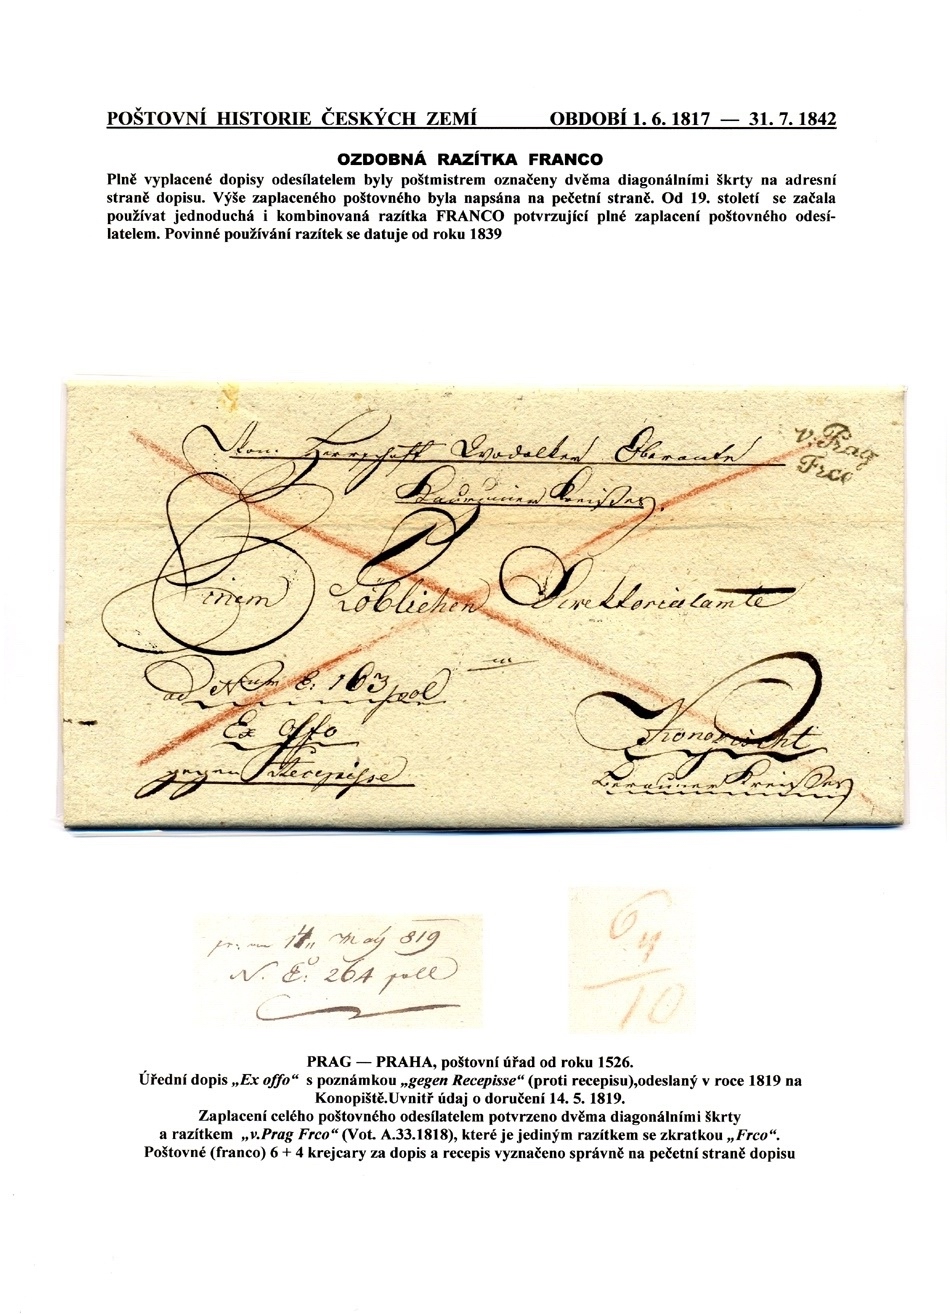 POŠTOVNÍ HISTORIE ČESKÝCH ZEMÍ OBDOBÍ 1. 6. 1817 — 31. 7. 1842
OZDOBNÁ RAZÍTKA FRANCO
Plně vyplacené dopisy odesílatelem byly poštmistrem označeny dvěma diagonálními škrty na adresní
straně dopisu. Výše zaplaceného poštovného byla napsána na pečetní straně. Od 19. století se začala
používat jednoduchá i kombinovaná razítka FRANCO potvrzující plné zaplacení poštovného odesí-
latelem. Povinné používání razítek se datuje od roku 1839
v. Prag
Frco
Von Herrschaft
Kaurzimer Kreißes.
Einem Löblichen Direktorialamte
ad Num E: 163 pol
Ex offo
gegen Recepisse
Konopischt
Berauner Kreißes
May 819
N. E: 264 poll
6
4
10
PRAG — PRAHA, poštovní úřad od roku 1526.
Úřední dopis „Ex offo“ s poznámkou „gegen Recepisse“ (proti recepisu),odeslaný v roce 1819 na
Konopiště.Uvnitř údaj o doručení 14. 5. 1819.
Zaplacení celého poštovného odesílatelem potvrzeno dvěma diagonálními škrty
a razítkem „v.Prag Frco“ (Vot. A.33.1818), které je jediným razítkem se zkratkou „Frco“.
Poštovné (franco) 6 + 4 krejcary za dopis a recepis vyznačeno správně na pečetní straně dopisu